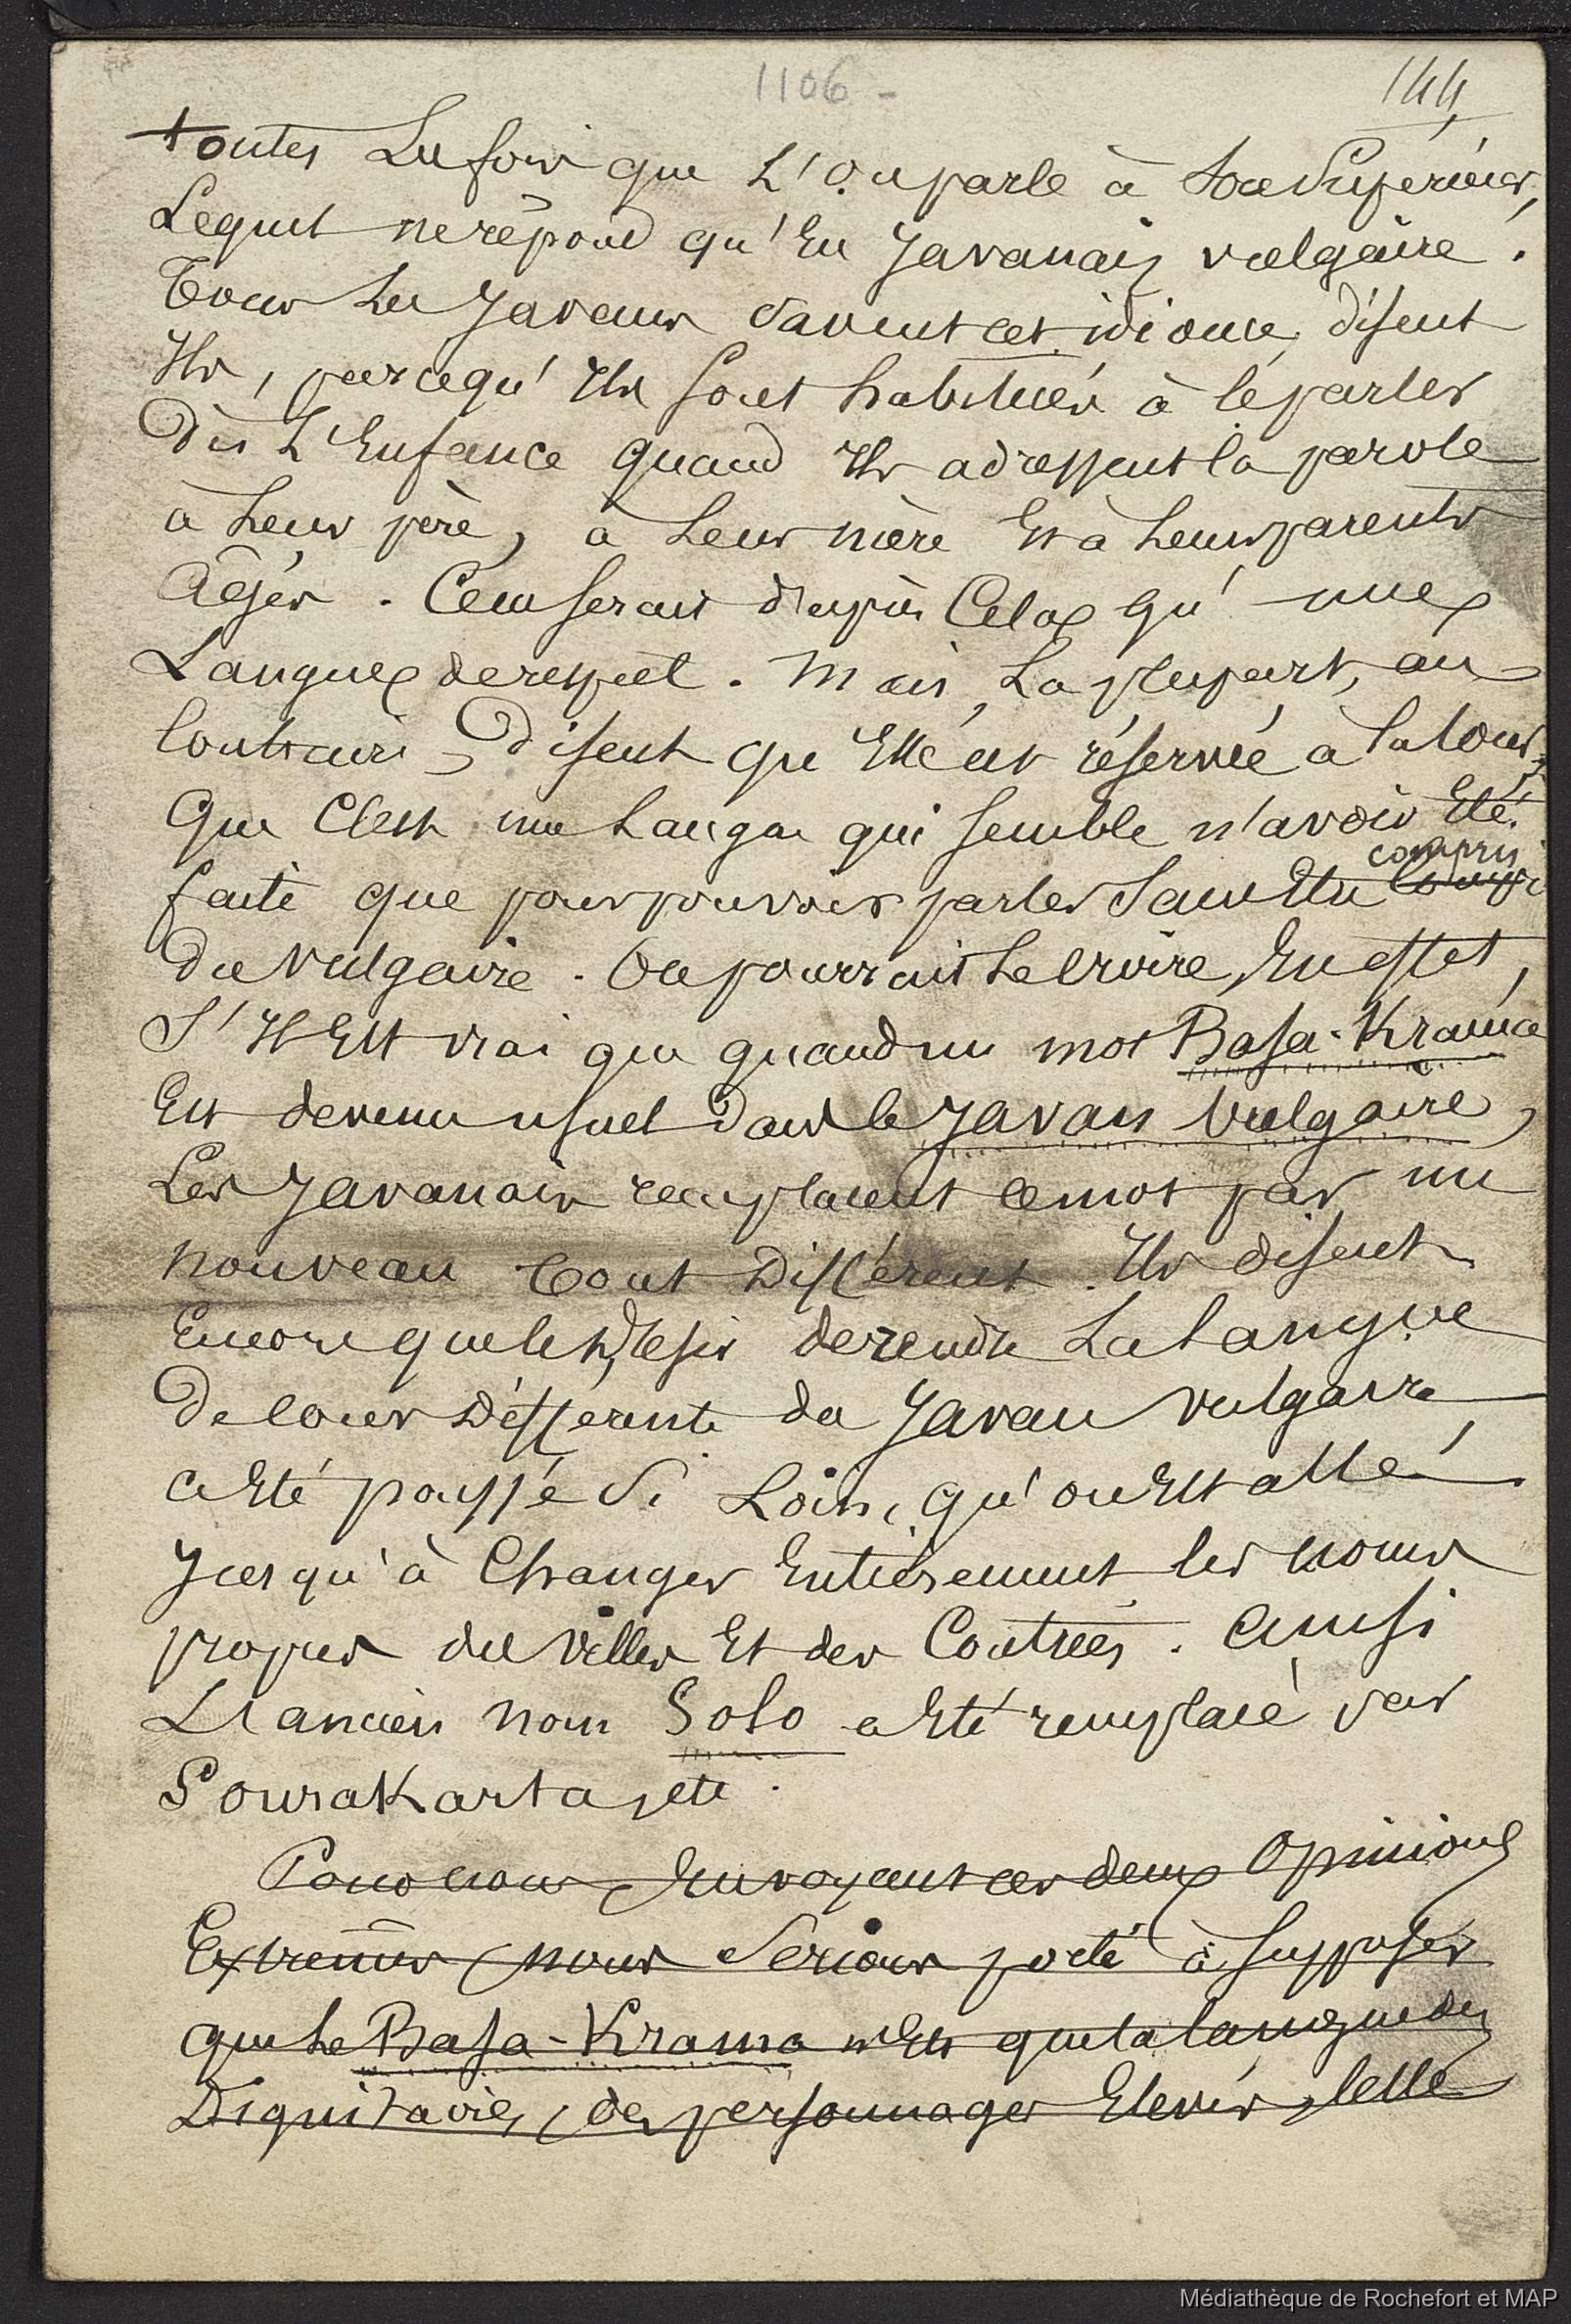 1106 -
144
toutes Les fois que L'On parle à Son Supérieur,
Lequel ne répond qu'En Javanais vulgaire.
Tous Les Javans savent cet idiome, disent
Ils, parcequ'Ils sont habitués à le parler
Dès L'Enfance quand Ils adressent la parole
à Leur père, à Leur mère Et à Leurs parents
Agés. Ce ne serait d'après Cela qu'une
Langue de respect. Mais, La plupart, au
Contraire, disent qu'Elle est réservée à la Cour,
Que C'est une Langue qui semble n'avoir Eté
faite que pour pouvoir parler Sans Etre compris
Du Vulgaire. On pourrait Le Croire, En effet,
S'Il Est vrai que quand un mot Basa-Krama
Est devenu usuel dans le Javan Vulgaire,
Les Javanais remplacent ce mot par un
nouveau tout Différent. Ils disent
Encore que le désir de rendre La Langue
De Cour Différente du Javan vulgaire,
a Eté poussé Si Loin, qu'on Est allé
Jusqu'à Changer Entièrement les noms
propres des Villes Et des Contrées. Ainsi
L'ancien nom Solo a Eté remplacé par
Sourakarta, etc.
Pour nous En voyant ces deux Opinions
Extrêmes, nous Serions porté à Supposer
que Le Basa-Krama n'Est que la langue des
Dignitaires, des personnages Elevés, celle
Médiathèque de Rochefort et MAP